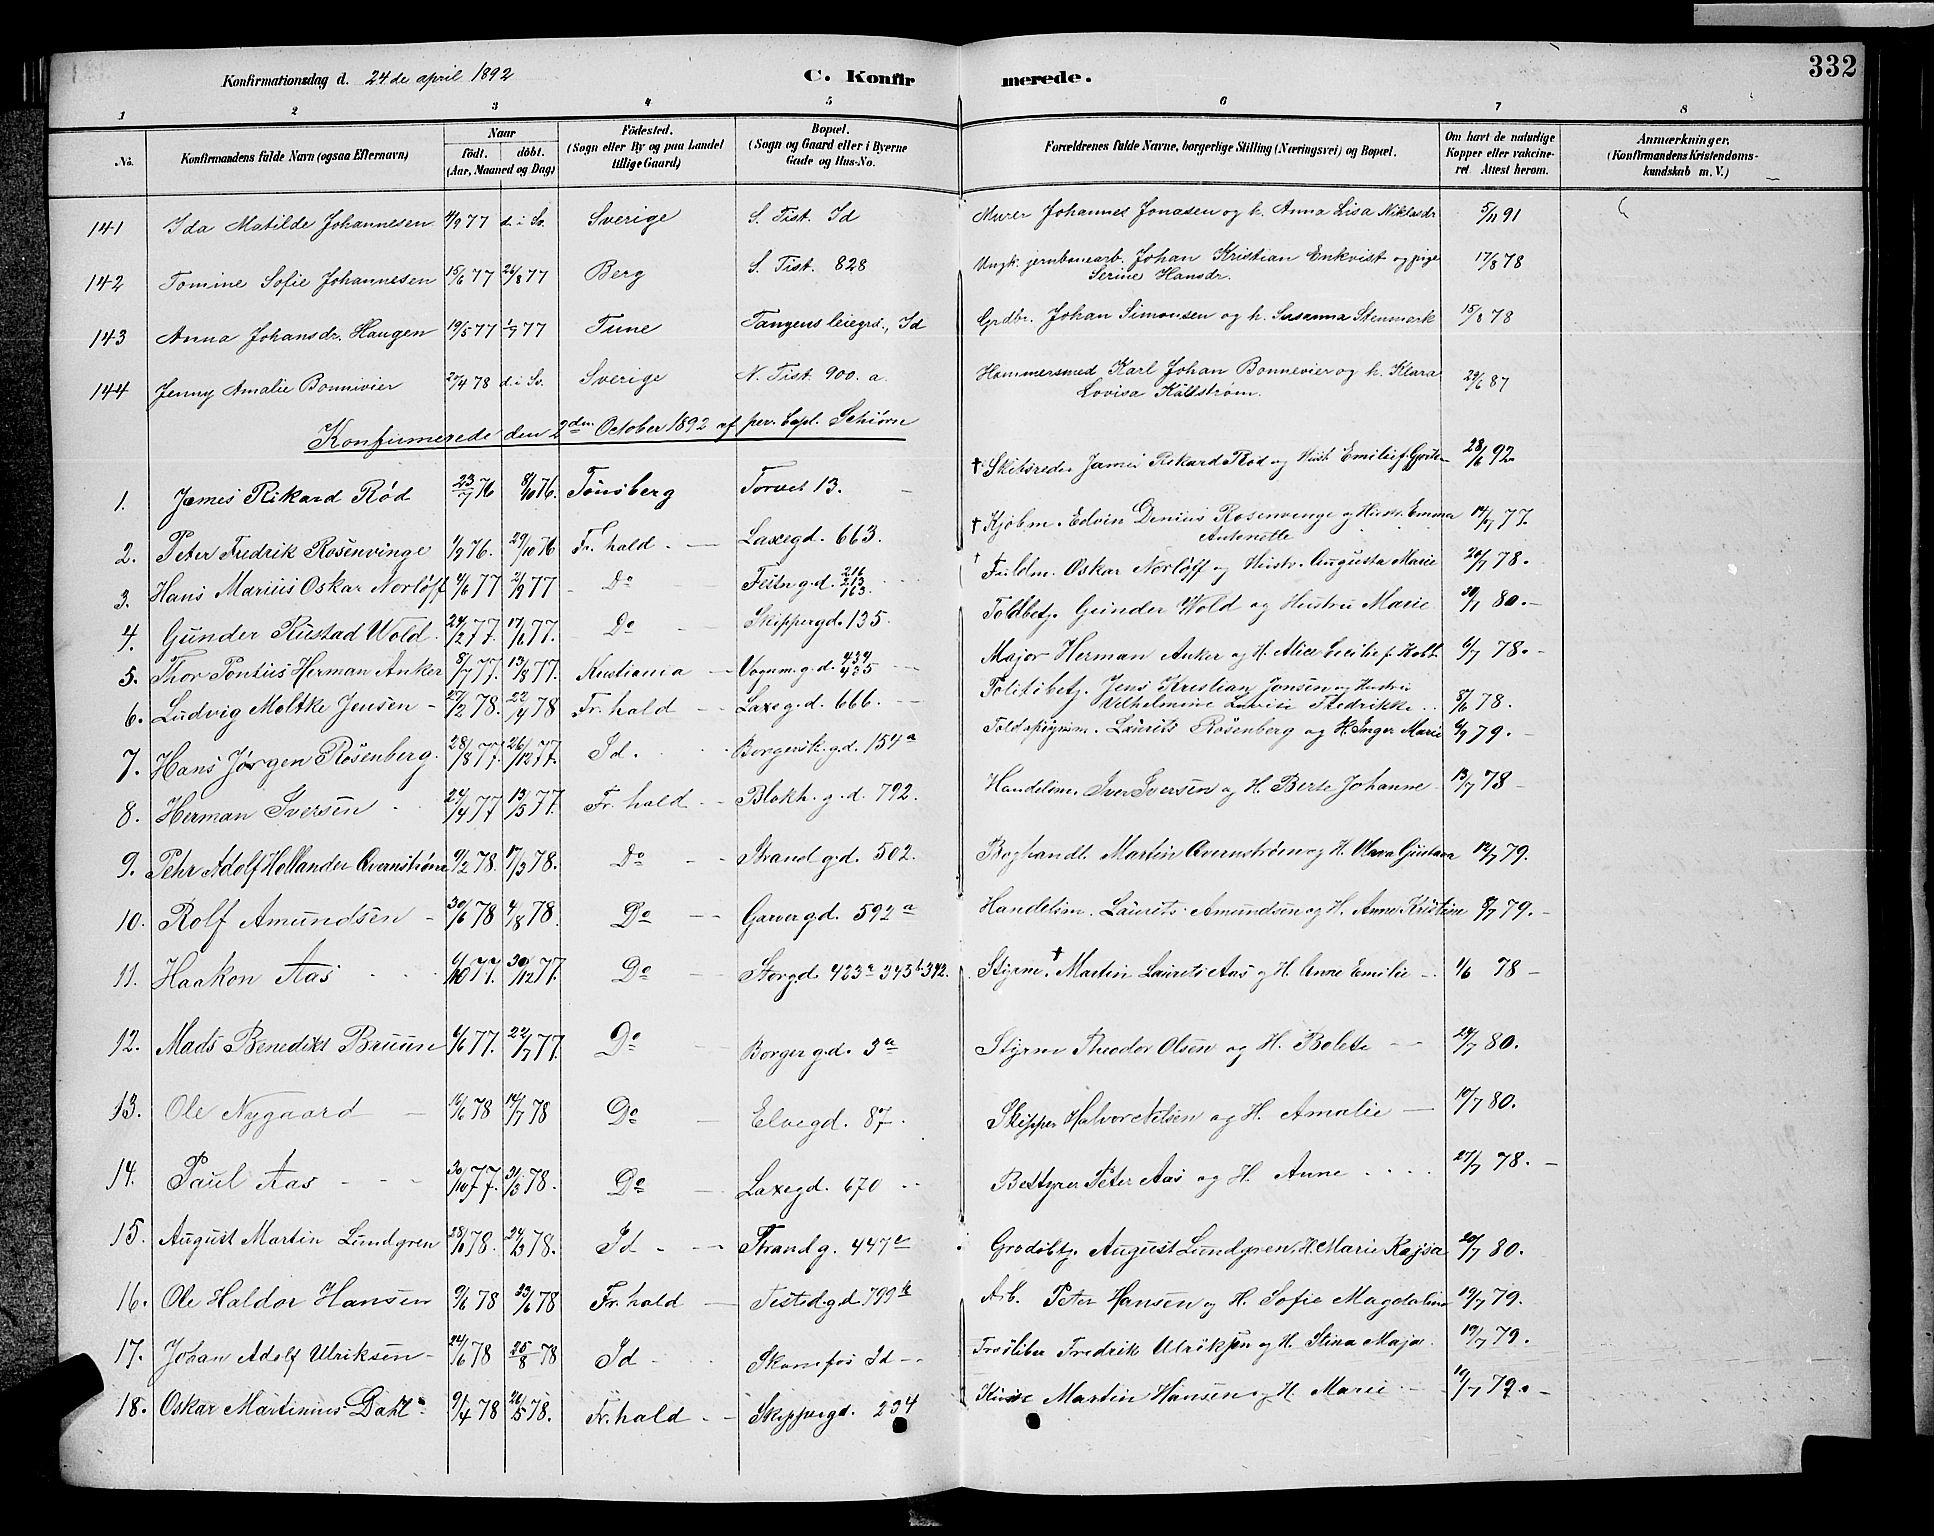 332
Konfirmationsdag d. 24de april 1892 C. Konfirmerede.
1 2 3 4 5 6 7 8
No. Konfirmandens fulde Navn (ogsaa Efternavn) Naar født. døbt. (Aar, Maaned og Dag) Födested. (Sogn eller By og paa Landet tillige Gaard) Bopæl. (Sogn og Gaard eller i Byerne Gade og Hus-No. Forældrenes fulde Navne, borgerlige Stilling (Næringsvei) og Bopæl. Om havt de naturlige Kopper eller vakcineret Attest herom. Anmærkninger, (Konfirmandens Kristendomskundskab m. V.)
141 Ida Matilde Johannesen 4/9 77 d. i Sv. Sverige S. Tist. Id Murer Johannes Jonasen og h. Anna Lisa Niklasdr 5/11 91
142 Tomine Sofie Johannesen 15/6 77 26/8 77 Berg S. Tist. 828 Ungk. jernbanearb. Johan Kristian Enkvist og pige
Serine Hansdr. 17/8 78
143 Anna Johansdr. Haugen 19/5 77 1/7 77 Tune Tangens leiegrd., Id Grdbr. Johan Simonsen og h. Susanna Stenmark 15/8 78
144 Jenny Amalie Bonnivier 20/4 78 d. i Sv. Sverige N. Tist. 900. a. Hammersmed Karl Johan Bonnevier og h. Klara
Lovisa Källstrøm. 29/6 87
Konfirmerede den 2den October 1892 af per. Capl. Schiørn
1. James Rikard Rød 23/7 76 8/10 76. Tønsberg Torvet 13. † Skibsreder James Rikard Rød og Hust. Emilie f. 28/6 92
2. Peter Fredrik Rosenvinge 1/9 76. 29/10 76 Fr. hald Laxegd. 663. † Kjøbm. Edvin Denius Rosenvinge og Hustr. Emma
Antonette 14/7 77.
3. Hans Marius Oskar Norløff 4/6 77 2/9 77 Do Festn. g.d. 216 213 163. † Fuldm. Oskar Norløff og Hustr. Augusta Marie 20/7 78.
4. Gunder Rustad Wold. 24/2 77. 17/6 77. Do Skippergd. 135. Toldbetj. Gunder Wold og Hustru Marie 30/1 80.
5. Thor Pontus Herman Anker 8/7 77. 13/8 77. Kristiania Vognm. g.d. 434 435 Major Herman Anker og H. Alice Cecilie f. 6/7 78.
6. Ludvig Moltke Jensen 27/2 78. 22/4 78 Fr. hald Laxeg.d. 666. Politibetj. Jens Kristian Jensen og Hustru
Vilhelmine Lovise Fredrikke 8/6 78.
7. Hans Jørgen Rosenberg. 28/8 77. 26/12 77. Id. Borgersk. g.d. 154a Laurits Rosenberg og H. Inger Marie 6/9 79.
8. Herman Iversen 24/4 77 13/5 77. Fr. hald Blokh. g.d. 792. Handelsm. Iver Iversen og H. Berte Johanne 13/7 78
9. Pehr Adolf Hollander Qvarnstrøm 9/2 78. 17/3 78. Do Strand g.d. 502. Boghandl. Martin Qvarnstrøm og H. Gustava 12/7 79.
10. Rolf Amundsen 30/6 78 4/8 78. Do Garvergd. 592a Handelsm. Laurits Amundsen og H. Anne Kristine 8/7 79.
11. Haakon Aas 6/10 77. 30/12 77. Do Storgd. 423a 343b 342. Styrm. † Martin Laurits Aas og H. Anne Emilie 1/6 78
12. Mads Benedikt Bruun 6/6 77. 22/7 77. Do Borger g.d. 3a Styrm Theodor Olsen og H. Bolete 24/7 80.
13. Ole Nygaard 16/6 78 14/7 78 Do Elvegd. 87. Skipper Halvor Nilsen og H. Amalie 10/7 80.
14. Paul Aas 30/10 77. 31/3 78. Do Laxegd. 670 Bestyrer Peter Aas og H. Anne 27/7 78.
15. August Martin Lundgren 28/1 78. 24/3 78. Id Strand g. 447a August Lundgren, H. Marie Kajsa 20/7 80.
16. Ole Haldor Hansen 9/6 78 23/6 78 Fr. hald Tistedgd 799b Arb. Peter Hansen og H. Sofie Magdalene 19/7 79.
17. Johan Adolf Ulriksen 24/6 78 25/8 78 Id Skonefos Id Træsliber Fredrik Ulriksen og H. Stina Maja. 19/7 79.
18. Oskar Martinius Dahl 9/4 78 26/5 78. Fr. hald Skippergd. 234 Martin Hansen og H. Marie 10/7 79.